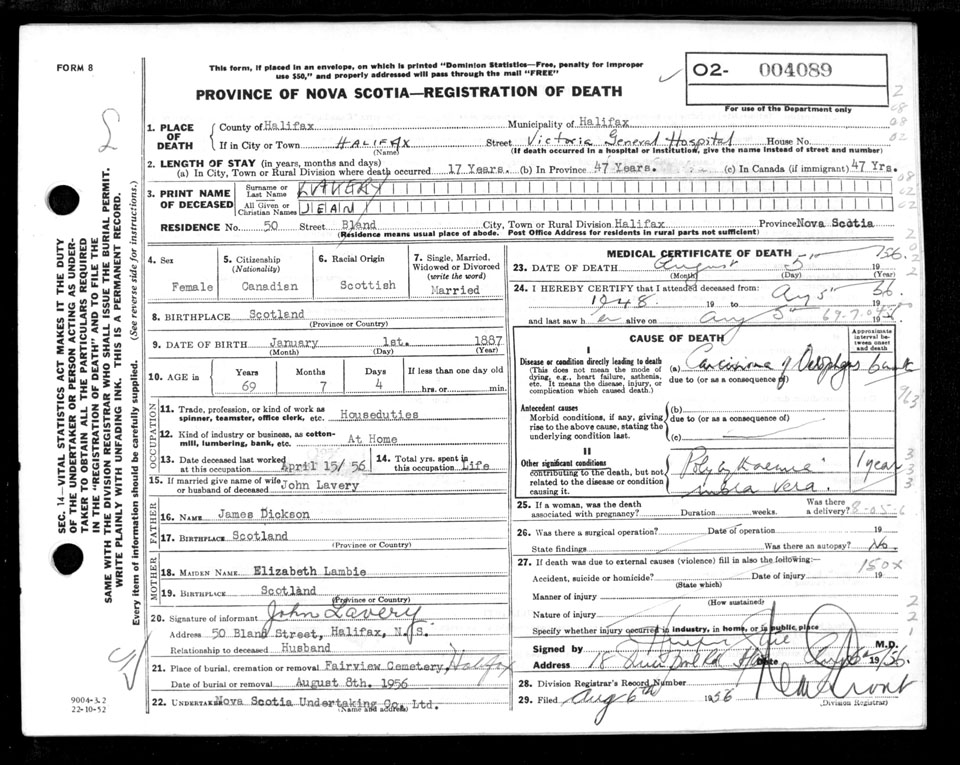 FORM 8
This form, if placed in an envelope, on which is printed "Dominion Statistics—Free, penalty for improper
use $50," and properly addressed will pass through the mail "FREE"
PROVINCE OF NOVA SCOTIA—REGISTRATION OF DEATH
O2- 004089
For use of the Department only
1. PLACE OF DEATH
County of Halifax Municipality of Halifax
If in City or Town HALIFAX Street Victoria General Hospital House No.
(Name) (If death occurred in a hospital or institution, give the name instead of street and number)
2. LENGTH OF STAY (in years, months and days)
(a) In City, Town or Rural Division where death occurred 17 Years. (b) In Province 47 Years. (c) In Canada (if immigrant) 47 Yrs.
3. PRINT NAME OF DECEASED
Surname or Last Name LAVERY
All Given or Christian Names JEAN
RESIDENCE No. 50 Street Bland City, Town or Rural Division Halifax Province Nova Scotia
(Residence means usual place of abode. Post Office Address for residents in rural parts not sufficient)
4. Sex
Female
5. Citizenship
(Nationality)
Canadian
6. Racial Origin
Scottish
7. Single, Married, Widowed or Divorced
(write the word)
Married
8. BIRTHPLACE Scotland
(Province or Country)
9. DATE OF BIRTH January 1st. 1887
(Month) (Day) (Year)
10. AGE in Years Months Days If less than one day old
69 7 4 hrs. or min.
OCCUPATION
11. Trade, profession, or kind of work as
spinner, teamster, office clerk, etc. Houseduties
12. Kind of industry or business, as cotton-
mill, lumbering, bank, etc. At Home
13. Date deceased last worked
at this occupation April 15/ 56
14. Total yrs. spent in
this occupation Life
15. If married give name of wife
or husband of deceased John Lavery
FATHER
16. NAME James Dickson
17. BIRTHPLACE Scotland
(Province or Country)
MOTHER
18. MAIDEN NAME Elizabeth Lambie
19. BIRTHPLACE Scotland
(Province or Country)
20. Signature of informant John Lavery
Address 50 Bland Street, Halifax, N. S.
Relationship to deceased Husband
21. Place of burial, cremation or removal Fairview Cemetery, Halifax
Date of burial or removal August 8th. 1956
22. UNDERTAKER Nova Scotia Undertaking Co. Ltd.
(Name and address)
MEDICAL CERTIFICATE OF DEATH
23. DATE OF DEATH August 5th 1956
(Month) (Day) (Year)
24. I HEREBY CERTIFY that I attended deceased from:
1948 19 to Aug 5th 56
and last saw her alive on Aug 5th 19
CAUSE OF DEATH
Approximate interval between onset and death
I
Disease or condition directly leading to death
(This does not mean the mode of
dying, e.g., heart failure, asthenia,
etc. It means the disease, injury, or
complication which caused death.)
(a) Carcinoma of Oesophagus
due to (or as a consequence of)
Antecedent causes
Morbid conditions, if any, giving
rise to the above cause, stating the
underlying condition last.
(b)
due to (or as a consequence of)
(c)
II
Other significant conditions
contributing to the death, but not
related to the disease or condition
causing it.
Polycythaemia
rubra vera. 1 year
25. If a woman, was the death
associated with pregnancy? Duration weeks. Was there a delivery?
26. Was there a surgical operation? Date of operation 19
State findings Was there an autopsy? No.
27. If death was due to external causes (violence) fill in also the following:
150X
Accident, suicide or homicide? Date of injury 19
(State which)
Manner of injury
(How sustained)
Nature of injury
Specify whether injury occurred in industry, in home, or in public place
Signed by M.D.
Address Date 19
28. Division Registrar's Record Number
29. Filed Aug 6th 1956
(Division Registrar)
SEC. 14—VITAL STATISTICS ACT MAKES IT THE DUTY
OF THE UNDERTAKER OR PERSON ACTING AS UNDER-
TAKER TO OBTAIN ALL THE PARTICULARS REQUIRED
IN THE "REGISTRATION OF DEATH" AND TO FILE THE
SAME WITH THE DIVISION REGISTRAR WHO SHALL ISSUE THE BURIAL PERMIT.
WRITE PLAINLY WITH UNFADING INK. THIS IS A PERMANENT RECORD.
Every item of information should be carefully supplied. (See reverse side for instructions.)
9004-3.2
22-10-52